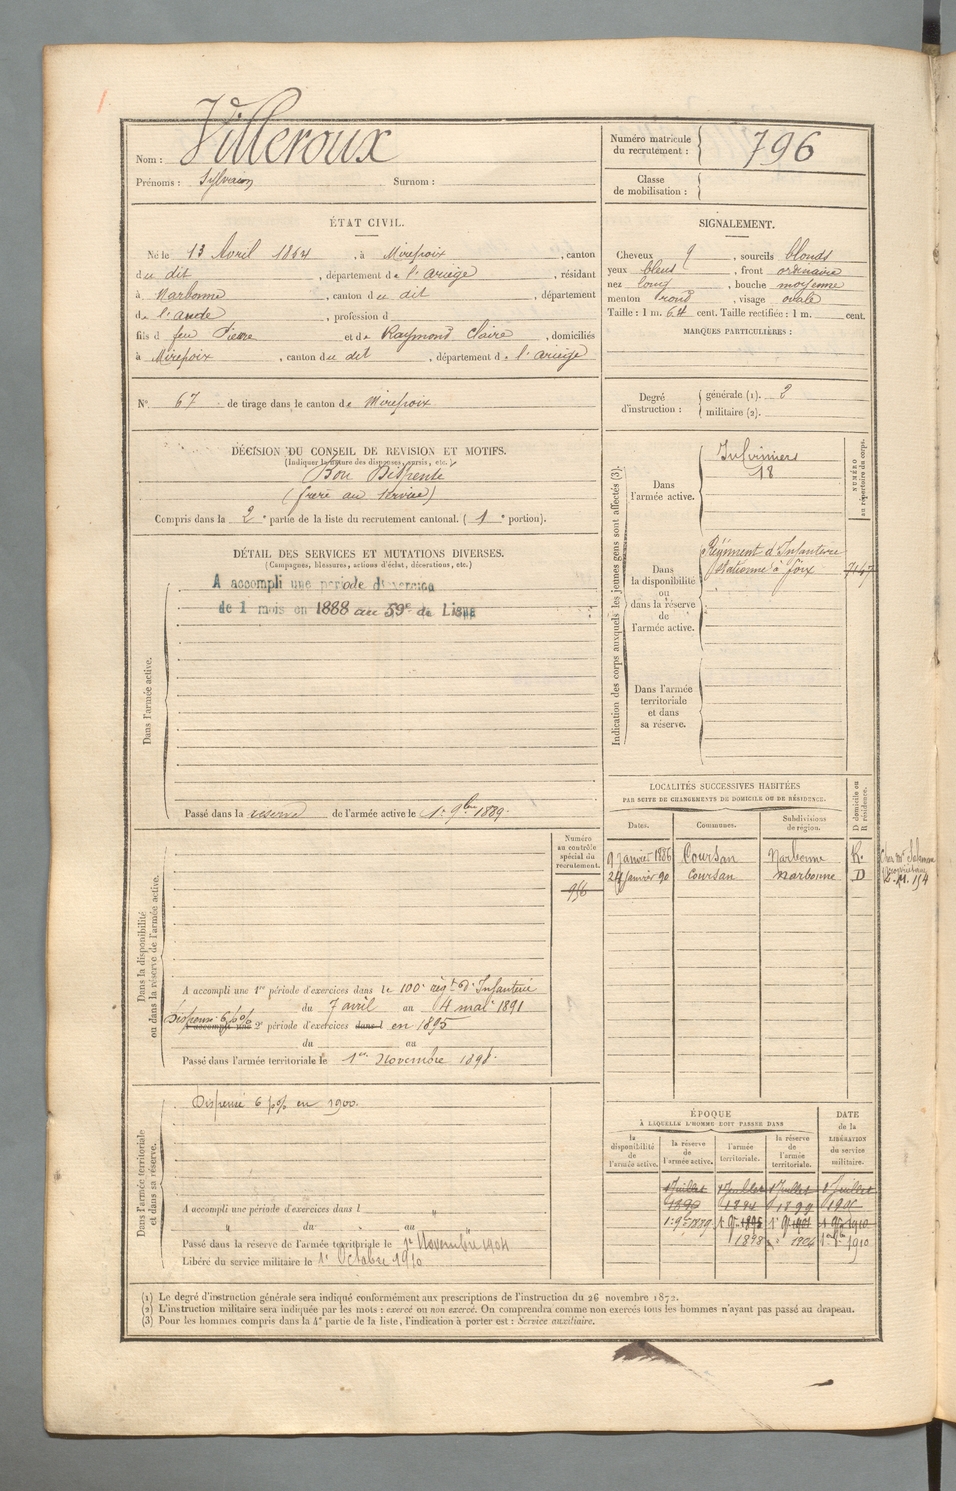 Nom : Villeroux
Prénoms : Sylvain Surnom :
Numéro matricule du recrutement : 796
Classe de mobilisation :
ÉTAT CIVIL.
Né le 13 Avril 1864, à Mirepoix, canton
du dit, département de l'ariège, résidant
à Narbonne, canton du dit, département
de l'aude, profession d
fils d feu Pierre et de Raymond Claire, domiciliés
à Mirepoix, canton du dit, département de l'ariège
SIGNALEMENT.
Cheveux , sourcils blonds
yeux bleus, front ordinaire
nez long, bouche moyenne
menton rond, visage ovale
Taille : 1 m. 64 cent. Taille rectifiée : 1 m. cent.
MARQUES PARTICULIÈRES :
N° 67 de tirage dans le canton de Mirepoix
Degré d'instruction : générale (1). 2
militaire (2).
DÉCISION DU CONSEIL DE REVISION ET MOTIFS.
(Indiquer la nature des dispenses, sursis, etc.)
Bon Dispensé
(frère au service)
Compris dans la 2e partie de la liste du recrutement cantonal. (1e portion).
DÉTAIL DES SERVICES ET MUTATIONS DIVERSES.
(Campagnes, blessures, actions d'éclat, décorations, etc.)
A accompli une période d'exercice
de 1 mois en 1888 au 59e de Ligne
Dans l'armée active.
Passé dans la réserve de l'armée active le 1r 9bre 1889.
Indication des corps auxquels les jeunes gens sont affectés (3).
NUMÉRO au répertoire du corps.
Dans l'armée active.
Infirmiers
18
Dans la disponibilité ou dans la réserve de l'armée active.
Régiment d'Infanterie
stationné à Foix
Dans l'armée territoriale et dans sa réserve.
LOCALITÉS SUCCESSIVES HABITÉES
PAR SUITE DE CHANGEMENTS DE DOMICILE OU DE RÉSIDENCE.
D domicile ou R résidence.
Dates. Communes. Subdivisions de région.
9 Janvier 1886 Coursan Narbonne R.
24 Janvier 90 Coursan Narbonne D
Dans la disponibilité ou dans la réserve de l'armée active.
Numéro au contrôle spécial du recrutement.
956
A accompli une 1re période d'exercices dans le 100e régt d'Infanterie
du 7 avril au 4 mai 1891
Dispensé 6 p% A accompli une 2e période d'exercices dans l en 1895
du au
Passé dans l'armée territoriale le 1er Novembre 1898.
Dans l'armée territoriale et dans sa réserve.
Dispensé 6 p% en 1900.
A accompli une période d'exercices dans l "
" du " au "
Passé dans la réserve de l'armée territoriale le 1r Novembre 1904
Libéré du service militaire le 1r Octobre 1910
ÉPOQUE
À LAQUELLE L'HOMME DOIT PASSER DANS
DATE de la LIBÉRATION du service militaire.
la disponibilité de l'armée active.
la réserve de l'armée active.
l'armée territoriale.
la réserve de l'armée territoriale.
1 Juillet 1 Juillet 1 Juillet 1 Juillet
1894 1899
1898 1904 1910
(1) Le degré d'instruction générale sera indiqué conformément aux prescriptions de l'instruction du 26 novembre 1872.
(2) L'instruction militaire sera indiquée par les mots : exercé ou non exercé. On comprendra comme non exercés tous les hommes n'ayant pas passé au drapeau.
(3) Pour les hommes compris dans la 4e partie de la liste, l'indication à porter est : Service auxiliaire.